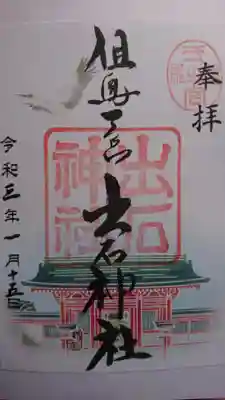 奉拝
但馬一宮
出石神社
出石神社
令和三年一月十五日